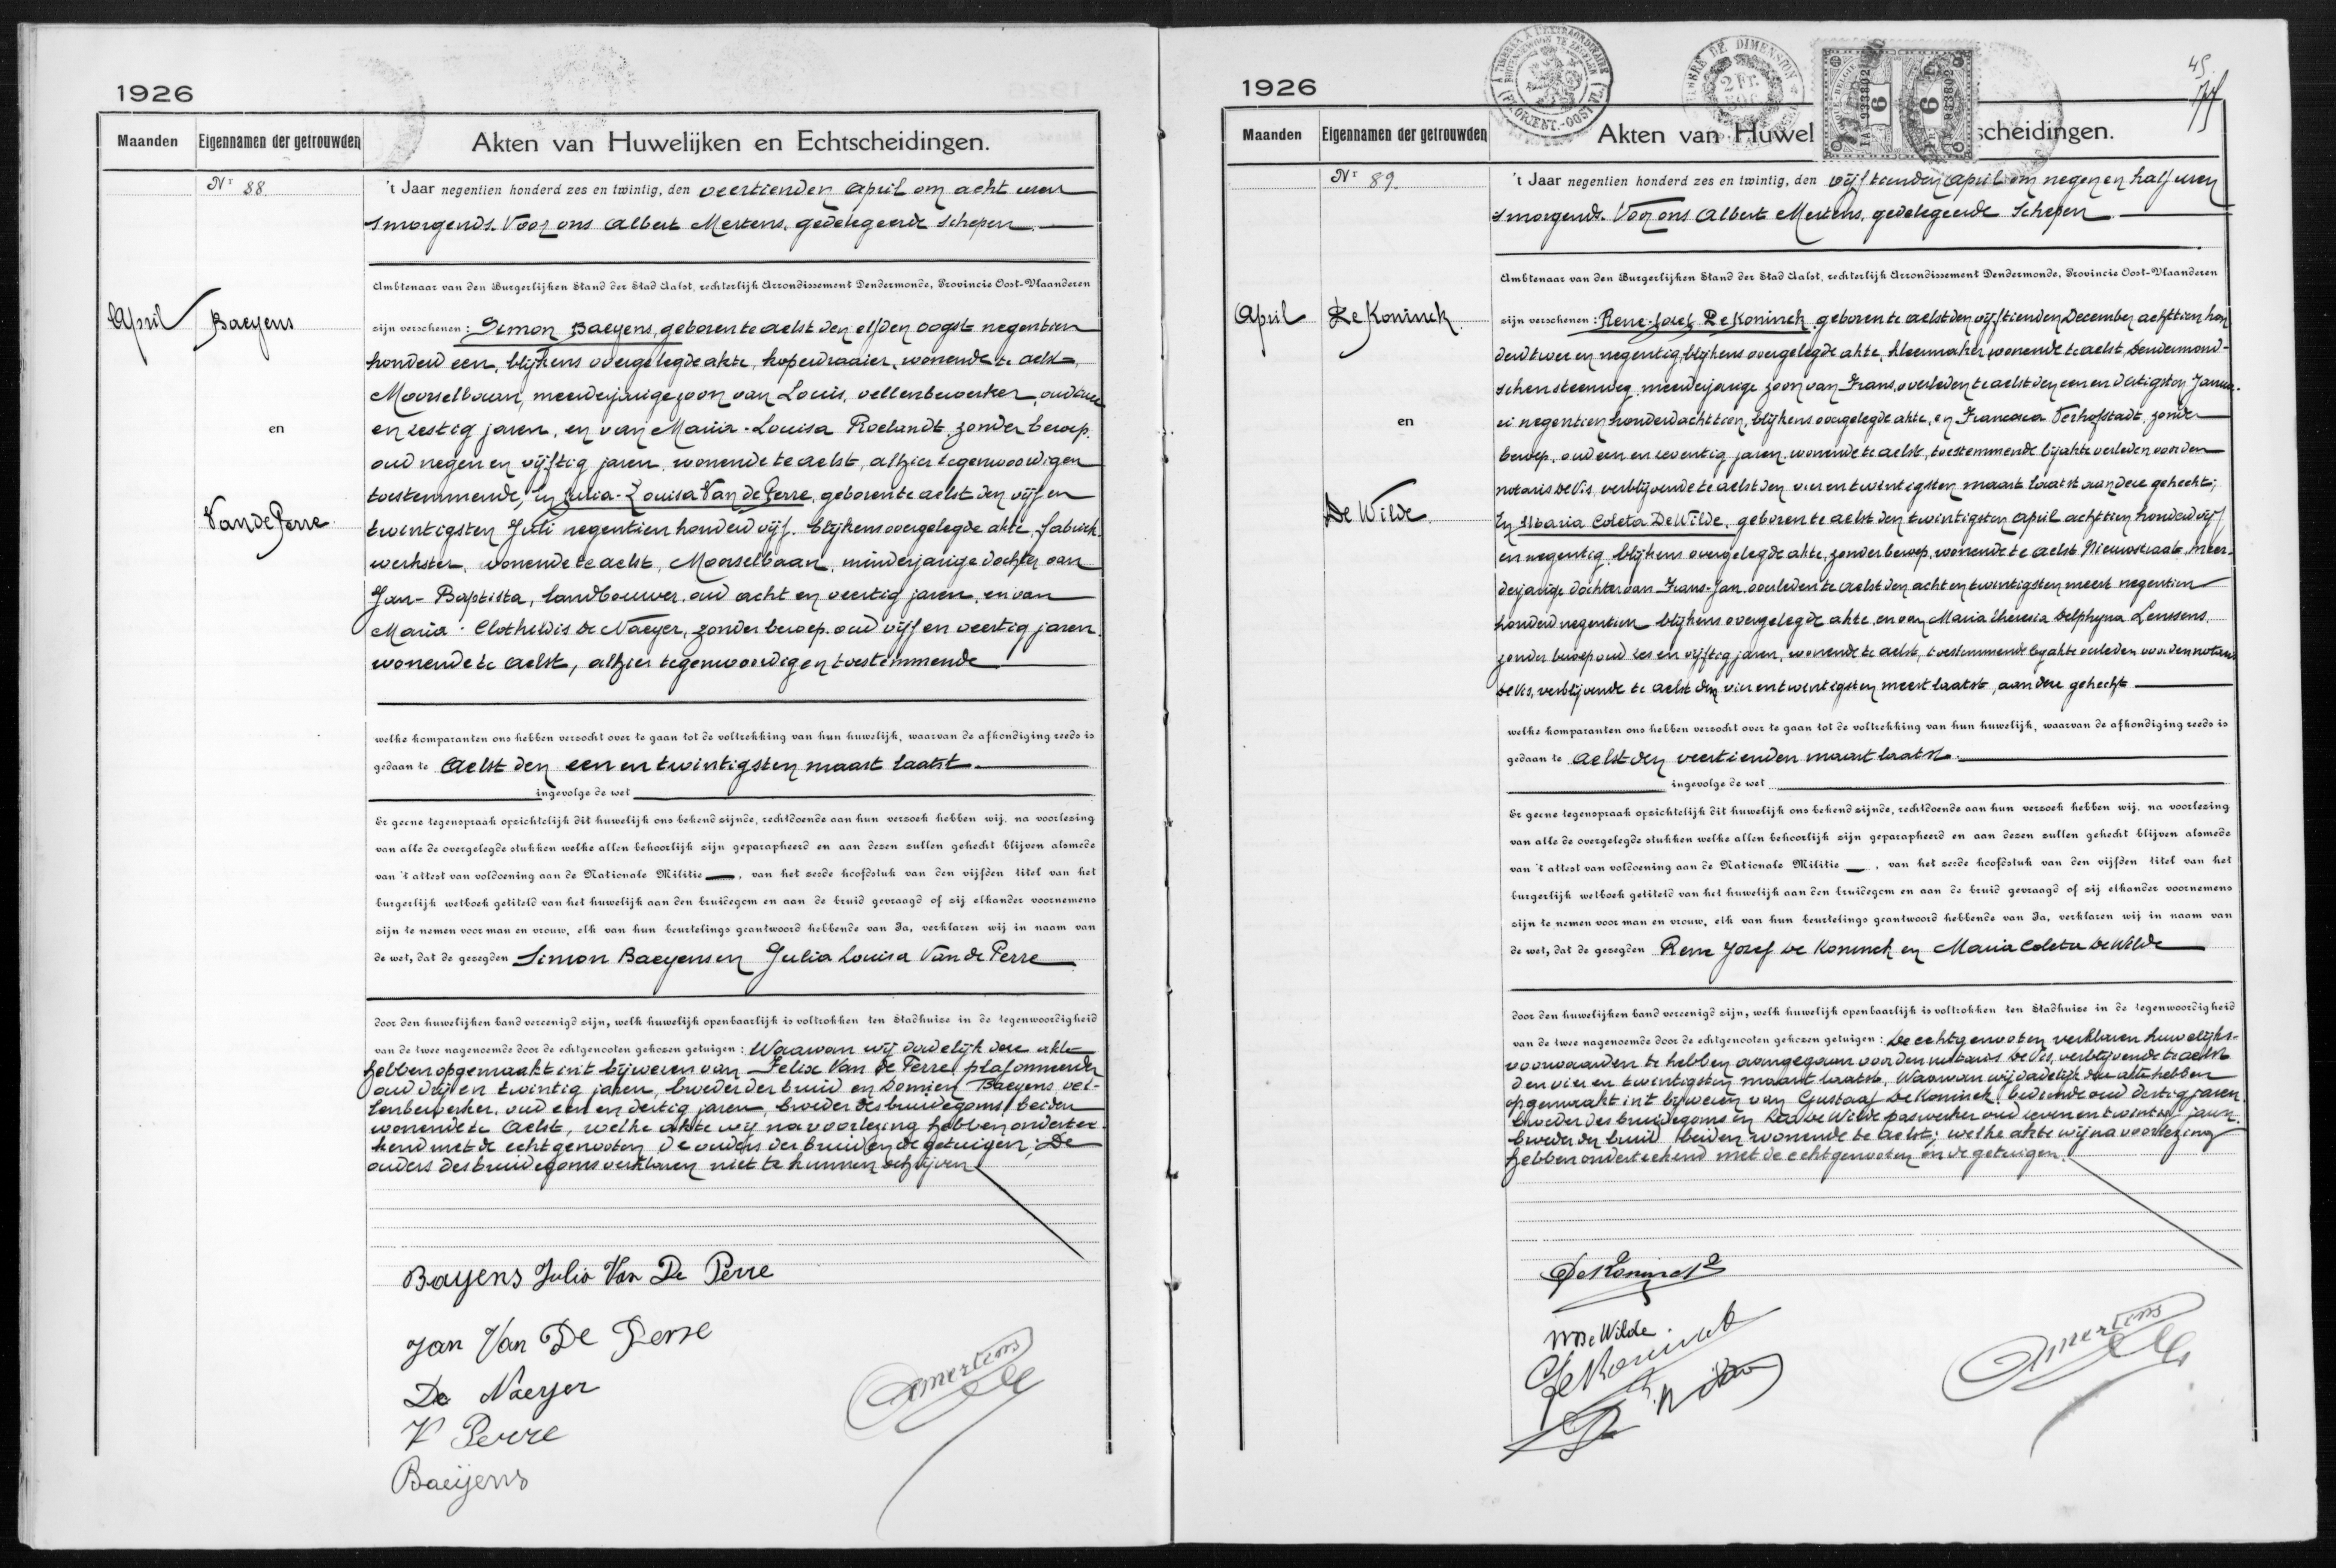 1926
Maanden
Eigennamen der getrouwden
Akten van Huwelijken en Echtscheidingen.
Nr 88.
't Jaar negentien honderd zes en twintig, den veertienden April om acht uren
smorgends. Voor ons Albert Mertens, gedelegeerde Schepen
Ambtenaar van den Burgerlijken Stand der Stad Aalst, rechterlijk Arrondissement Dendermonde, Provincie Oost-Vlaanderen
April
Baeyens
en
Van de Perre
zijn verschenen: Simon Baeyens, geboren te Aelst den elfden oogst negentien
honderd een, blijkens overgelegde akte, koperdraaier, wonende te Aelst,
Moorselbaan, meerderjarige zoon van Louis, vellenbewerker, oud
en zestig jaren, en van Maria-Louisa Roelandt, zonder beroep,
oud negen en vijftig jaren, wonende te Aelst, alhier tegenwoordig en
toestemmende, En Julia-Louisa Van de Perre, geboren te Aelst den vijf en
twintigsten Juli negentien honderd vijf, blijkens overgelegde akte, fabriek
werkster, wonende te Aelst, Moorselbaan, minderjarige dochter van
Jan-Baptista, landbouwer, oud acht en veertig jaren, en van
Maria-Clothildis De Naeyer, zonder beroep, oud vijf en veertig jaren,
wonende te Aelst, alhier tegenwoordig en toestemmende
welke komparanten ons hebben verzocht over te gaan tot de voltrekking van hun huwelijk, waarvan de afkondiging reeds is
gedaan te Aelst den een en twintigsten maart laatst.
ingevolge de wet
Er geene tegenspraak opzichtelijk dit huwelijk ons bekend zijnde, rechtdoende aan hun verzoek hebben wij, na voorlezing
van alle de overgelegde stukken welke allen behoorlijk zijn geparapheerd en aan dezen zullen gehecht blijven alsmede
van 't attest van voldoening aan de Nationale Militie —, van het zesde hoofdstuk van den vijfden titel van het
burgerlijk wetboek getiteld van het huwelijk aan den bruidegom en aan de bruid gevraagd of zij elkander voornemens
zijn te nemen voor man en vrouw, elk van hun beurtelings geantwoord hebbende van Ja, verklaren wij in naam van
de wet, dat de gezegden Simon Baeyens en Julia Louisa Van de Perre
door den huwelijken band vereenigd zijn, welk huwelijk openbaarlijk is voltrokken ten Stadhuize in de tegenwoordigheid
van de twee nagenoemde door de echtgenooten gekozen getuigen: Waarvan wij dadelijk deze akte
hebben opgemaakt in 't bijwezen van Felix Van de Perre, plafonneerder
oud drij en twintig jaren, broeder der bruid en Domien Baeyens, vel-
lenbewerker, oud een en dertig jaren, broeder des bruidegoms, beiden
wonende te Aelst, welke akte wij na voorlezing hebben onderteek-
kend met de echtgenooten, de ouders der bruid en de getuigen; De
ouders des bruidegoms verklaren niet te kunnen schrijven
Bayens Julia Van De Perre
Jan Van De Perre
De Naeyer
V Perre
Baeyens
Amertens
1926
45
Maanden
Eigennamen der getrouwden
Akten van Huwel
scheidingen.
TIMBRE DE DIMENSION
2 Fr.
6
6
Nr 89.
't Jaar negentien honderd zes en twintig, den vijftienden April om negen en half uren
smorgends. Voor ons Albert Mertens, gedelegeerde Schepen
Ambtenaar van den Burgerlijken Stand der Stad Aalst, rechterlijk Arrondissement Dendermonde, Provincie Oost-Vlaanderen
April
De Koninck
en
De Wilde
zijn verschenen: Rene-Jozef De Koninck, geboren te Aelst den vijftienden December achttien hon
derd twee en negentig, blijkens overgelegde akte, kleermaker, wonende te Aelst, Dendermond-
schen steenweg, meerderjarige zoon van Frans, overleden te Aelst den een en dertigsten Janua-
ri negentien honderd achttien, blijkens overgelegde akte, en Francisca Verhofstadt, zonder
beroep, oud een en zeventig jaren, wonende te Aelst, toestemmende bij akte verleden voor den
notaris De Vis, verblijvende te Aelst den vier en twintigsten maart laatst aan deze gehecht;
En Maria Coleta De Wilde, geboren te Aelst den twintigsten April achttien honderd vijf
en negentig, blijkens overgelegde akte, zonder beroep, wonende te Aelst Nieuwstraat, meer-
derjarige dochter van Frans-Jan, overleden te Aelst den acht en twintigsten meert negentien
honderd negentien blijkens overgelegde akte, en van Maria Theresia Delphyna Lenssens,
zonder beroep oud zes en vijftig jaren, wonende te Aelst, toestemmende bij akte verleden voor den notaris
De Vis, verblijvende te Aelst den vier en twintigsten meert laatst, aan deze gehecht
welke komparanten ons hebben verzocht over te gaan tot de voltrekking van hun huwelijk, waarvan de afkondiging reeds is
gedaan te Aelst den veertienden maart laatst.
ingevolge de wet
Er geene tegenspraak opzichtelijk dit huwelijk ons bekend zijnde, rechtdoende aan hun verzoek hebben wij, na voorlezing
van alle de overgelegde stukken welke allen behoorlijk zijn geparapheerd en aan dezen zullen gehecht blijven alsmede
van 't attest van voldoening aan de Nationale Militie —, van het zesde hoofdstuk van den vijfden titel van het
burgerlijk wetboek getiteld van het huwelijk aan den bruidegom en aan de bruid gevraagd of zij elkander voornemens
zijn te nemen voor man en vrouw, elk van hun beurtelings geantwoord hebbende van Ja, verklaren wij in naam van
de wet, dat de gezegden Rene Jozef De Koninck en Maria Coleta De Wilde
door den huwelijken band vereenigd zijn, welk huwelijk openbaarlijk is voltrokken ten Stadhuize in de tegenwoordigheid
van de twee nagenoemde door de echtgenooten gekozen getuigen: De echtgenooten verklaren huwelijks-
voorwaarden te hebben aangegaan voor den notaris De Vis, verblijvende te Aelst
den vier en twintigsten maart laatst, Waarvan wij dadelijk deze akte hebben
opgemaakt in 't bijwezen van Gustaaf De Koninck, bediende oud dertig jaren,
broeder des bruidegoms en De Wilde paswerker oud zeven en twintig jaren
broeder der bruid beiden wonende te Aelst; welke akte wij na voorlezing
hebben onderteekend met de echtgenooten en de getuigen.
De Koninck
M De Wilde.
De Koninck
Amertens